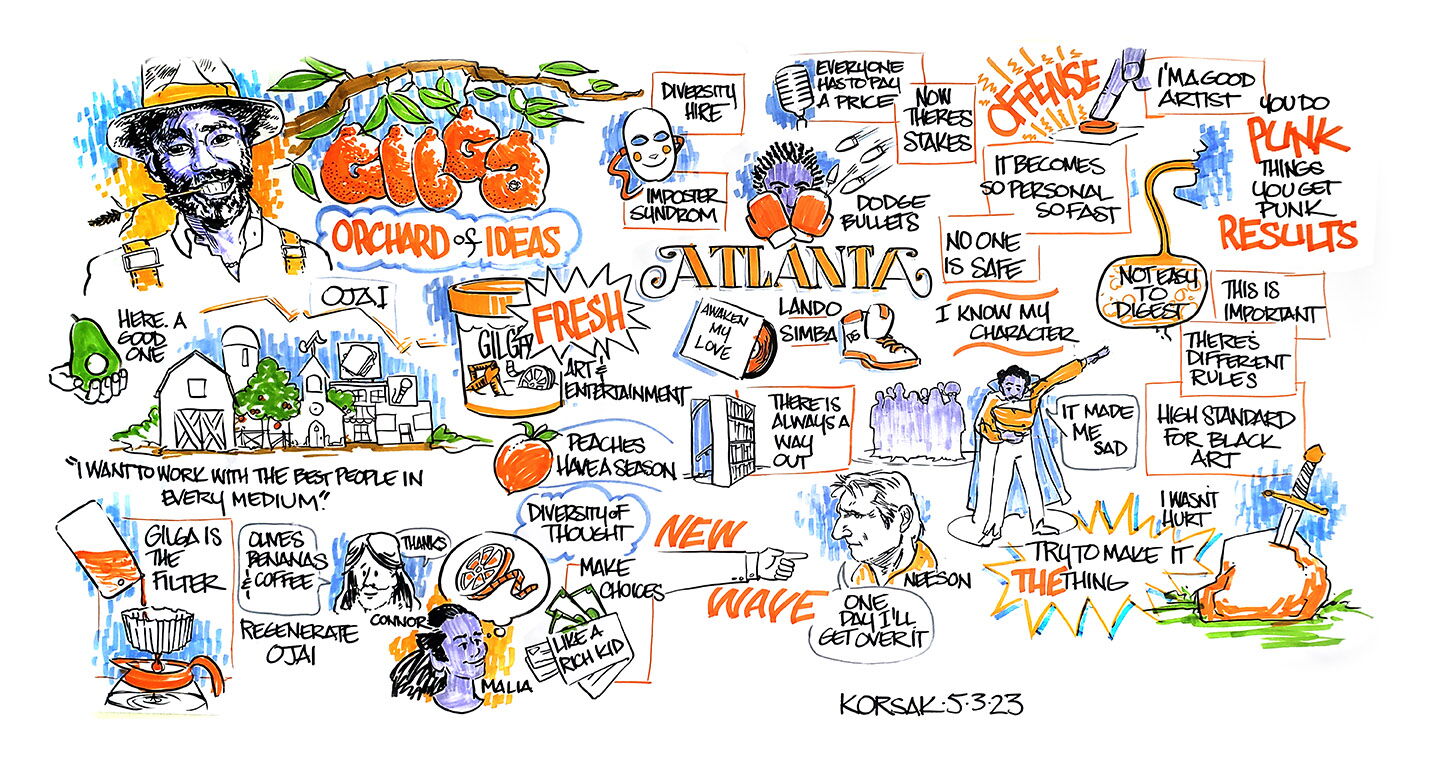 GILGA
ORCHARD of IDEAS
OJAI
HERE. A
GOOD
ONE
"I WANT TO WORK WITH THE BEST PEOPLE IN
EVERY MEDIUM."
GILGA IS
THE
FILTER
OLIVES
BENANAS
& COFFEE
REGENERATE
OJAI
THANKS
CONNOR
MALIA
GILGA
FRESH
ART &
ENTERTAINMENT
PEACHES
HAVE A SEASON
DIVERSITY OF
THOUGHT
MAKE
CHOICES
LIKE A
RICH KID
DIVERSITY
HIRE
IMPOSTER
SYNDROM
EVERYONE
HAS TO PAY
A PRICE
NOW
THERE'S
STAKES
DODGE
BULLETS
ATLANTA
AWAKEN
MY
LOVE
LANDO
SIMBA
THERE IS
ALWAYS A
WAY
OUT
NEW
WAVE
NEESON
ONE
DAY I'LL
GET OVER IT
OFFENSE
I'M A GOOD
ARTIST
IT BECOMES
SO PERSONAL
SO FAST
NO ONE
IS SAFE
I KNOW MY
CHARACTER
IT MADE
ME
SAD
YOU DO
PUNK
THINGS
YOU GET
PUNK
RESULTS
NOT EASY
TO
DIGEST
THIS IS
IMPORTANT
THERE'S
DIFFERENT
RULES
HIGH STANDARD
FOR BLACK
ART
I WASN'T
HURT
TRY TO MAKE IT
THE THING
KORSAK·5·3·23